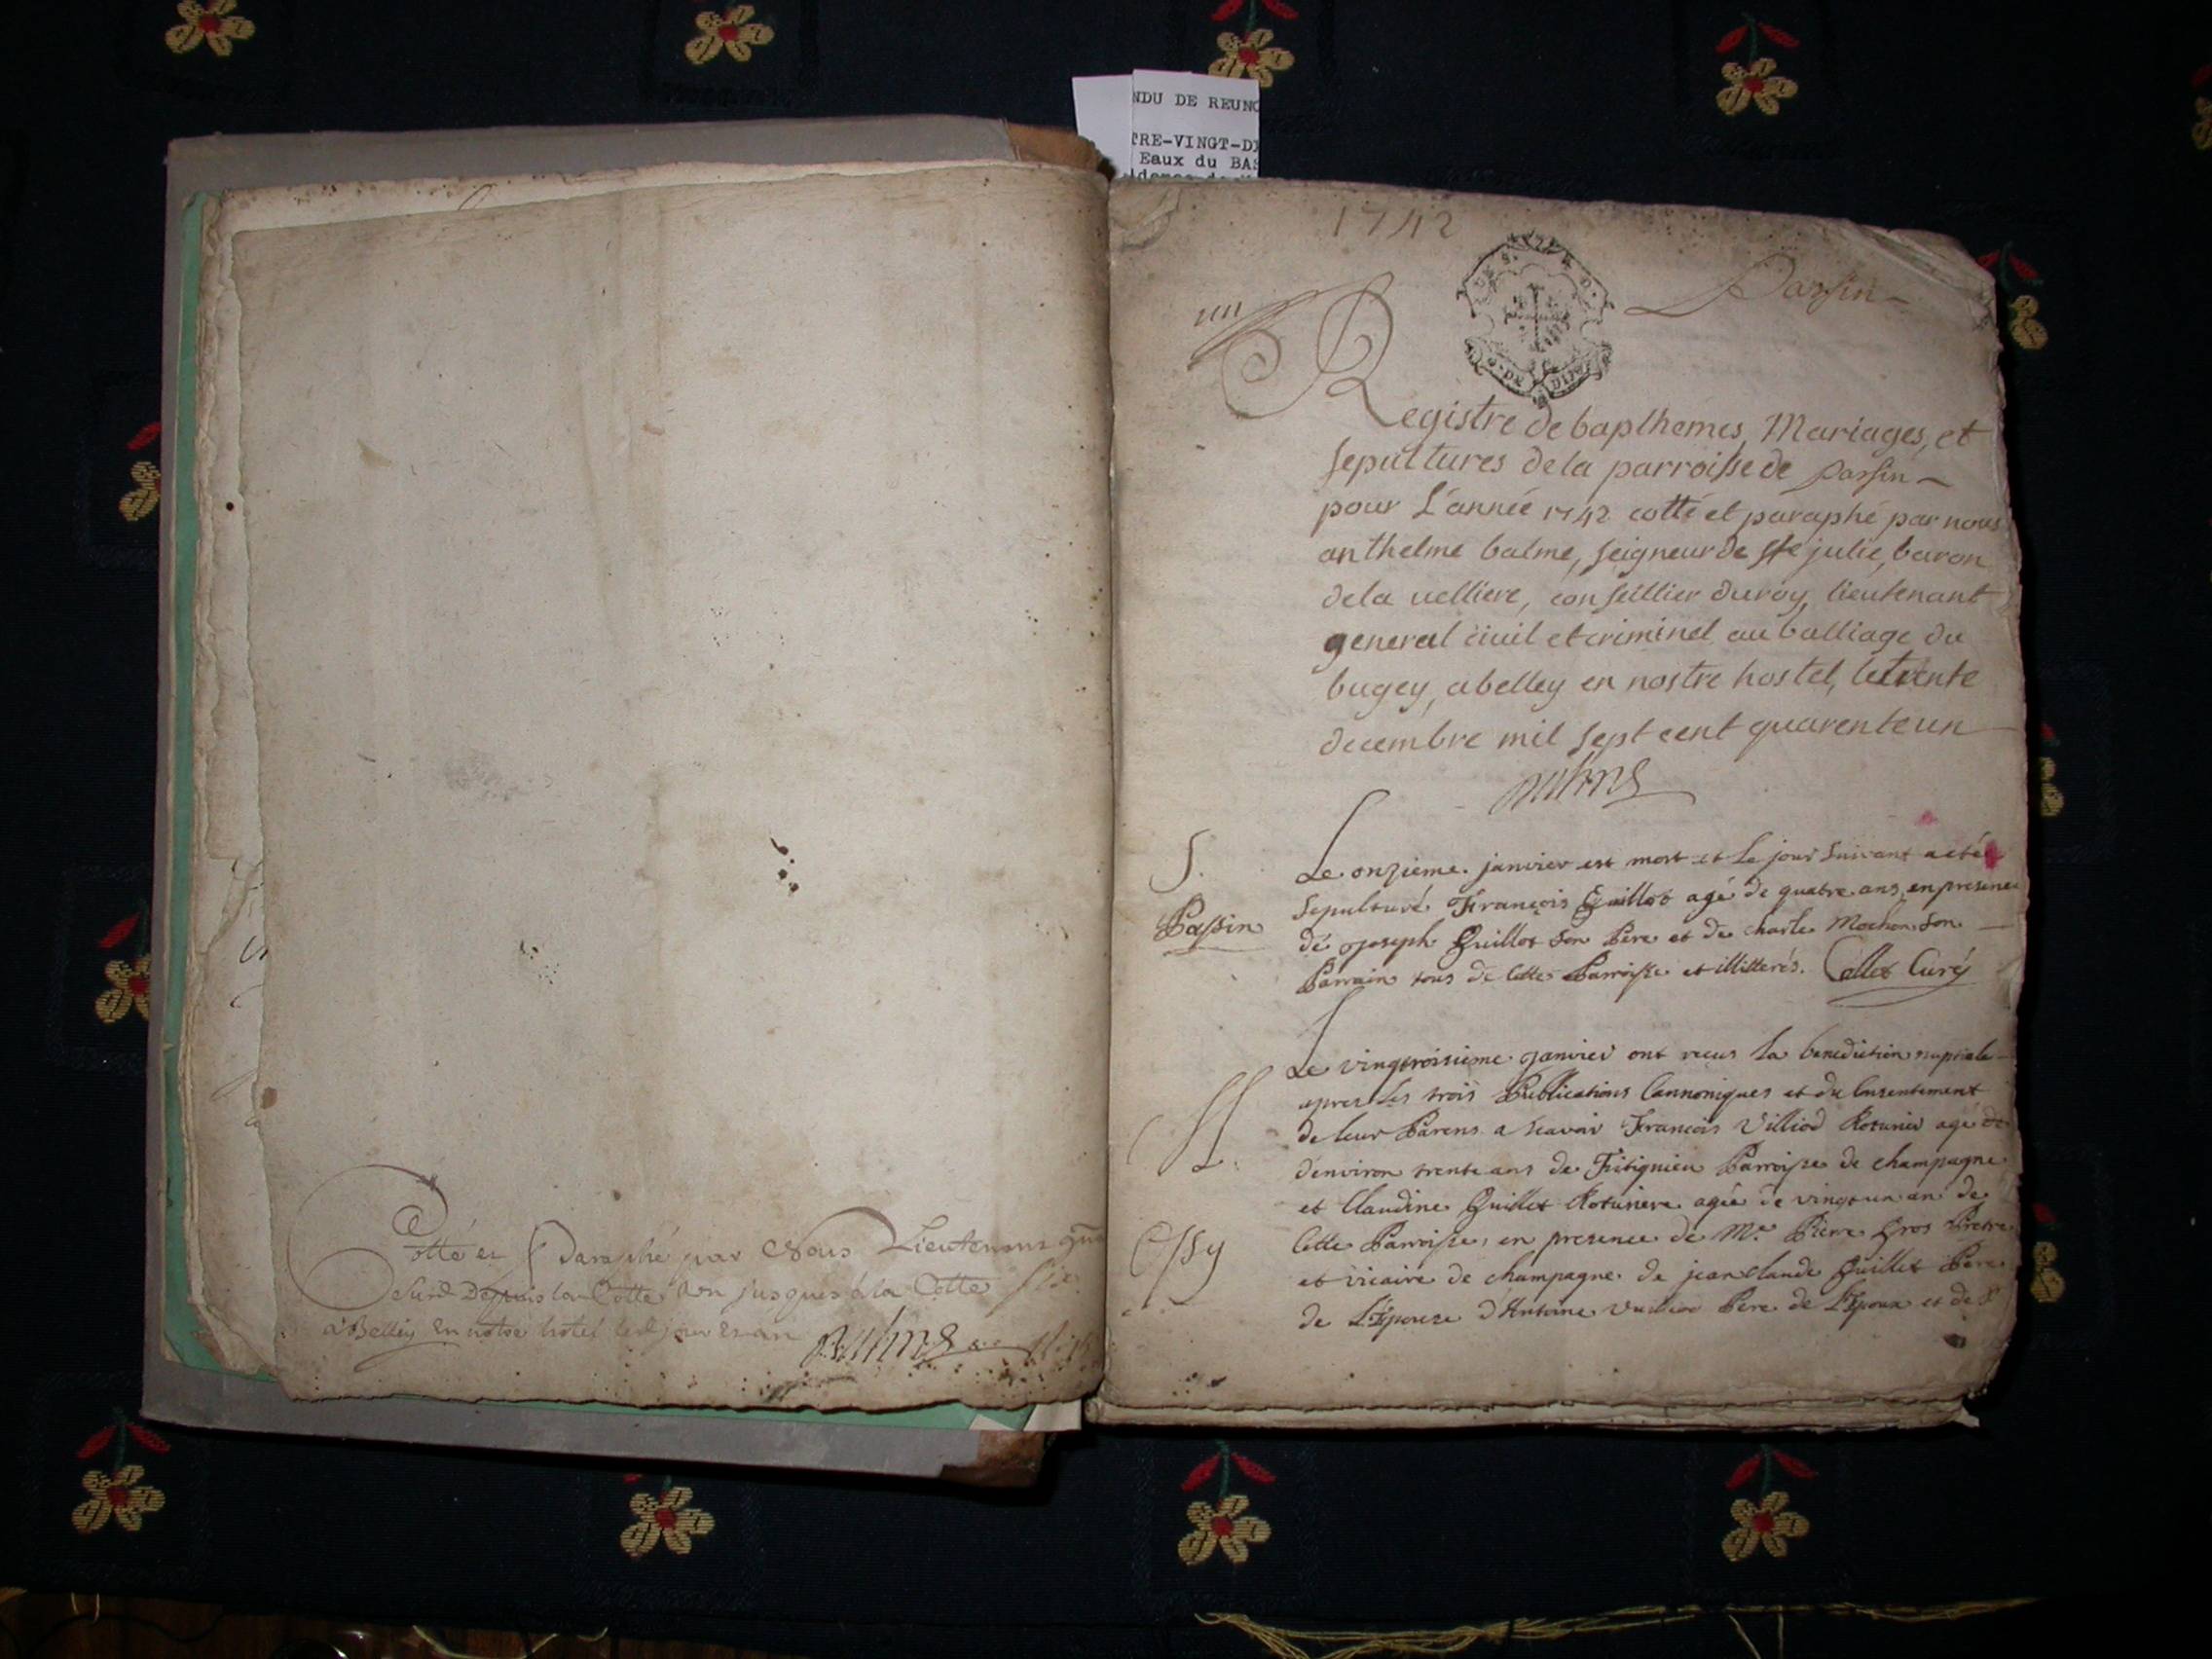 NDU DE REUNO
TRE-VINGT-DI
Eaux du BAS
Cotté et Paraphé par Nous Lieutenant gñal
susd Depuis la Cotte Un jusques à la Cotte six
a Belley En notre hotel led jour et an
1742
Passin
un
Registre de bapthemes, Mariages, et
sepultures de la parroisse de passin
pour L'année 1742 cotté et paraphé par nous
anthelme balme, seigneur de ste julie, baron
de la velliere, conseillier du roy, lieutenant
general civil et criminel au balliage du
bugey, a belley en nostre hostel, le trente
decembre mil sept cent quarente un
S.
Passin
Le onzieme janvier est mort et le jour suivant a eté
sepulturé François Guillot agé de quatre ans, en presence
de joseph Guillot son Pere et de charle Mochon son
Parrain tous de cette Parroisse et illitterés. Collet Curé
M.
Ossy
Le vingtroisieme janvier ont reçus la benediction nuptiale
apres les trois Publications Cannoniques et du Consentement
de leur Parens a scavoir François Villiod Roturier agé de
d'environ trente ans de Fitignieu Parroisse de champagne
et Claudine Guillet Roturiere agée de vingt un an de
cette Parroisse, en presence de Mr. Pierre Gros Pretre
et vicaire de champagne de jean claude Guillet Pere
de L'Epouse d'Antoine Pere de L'Epoux et de